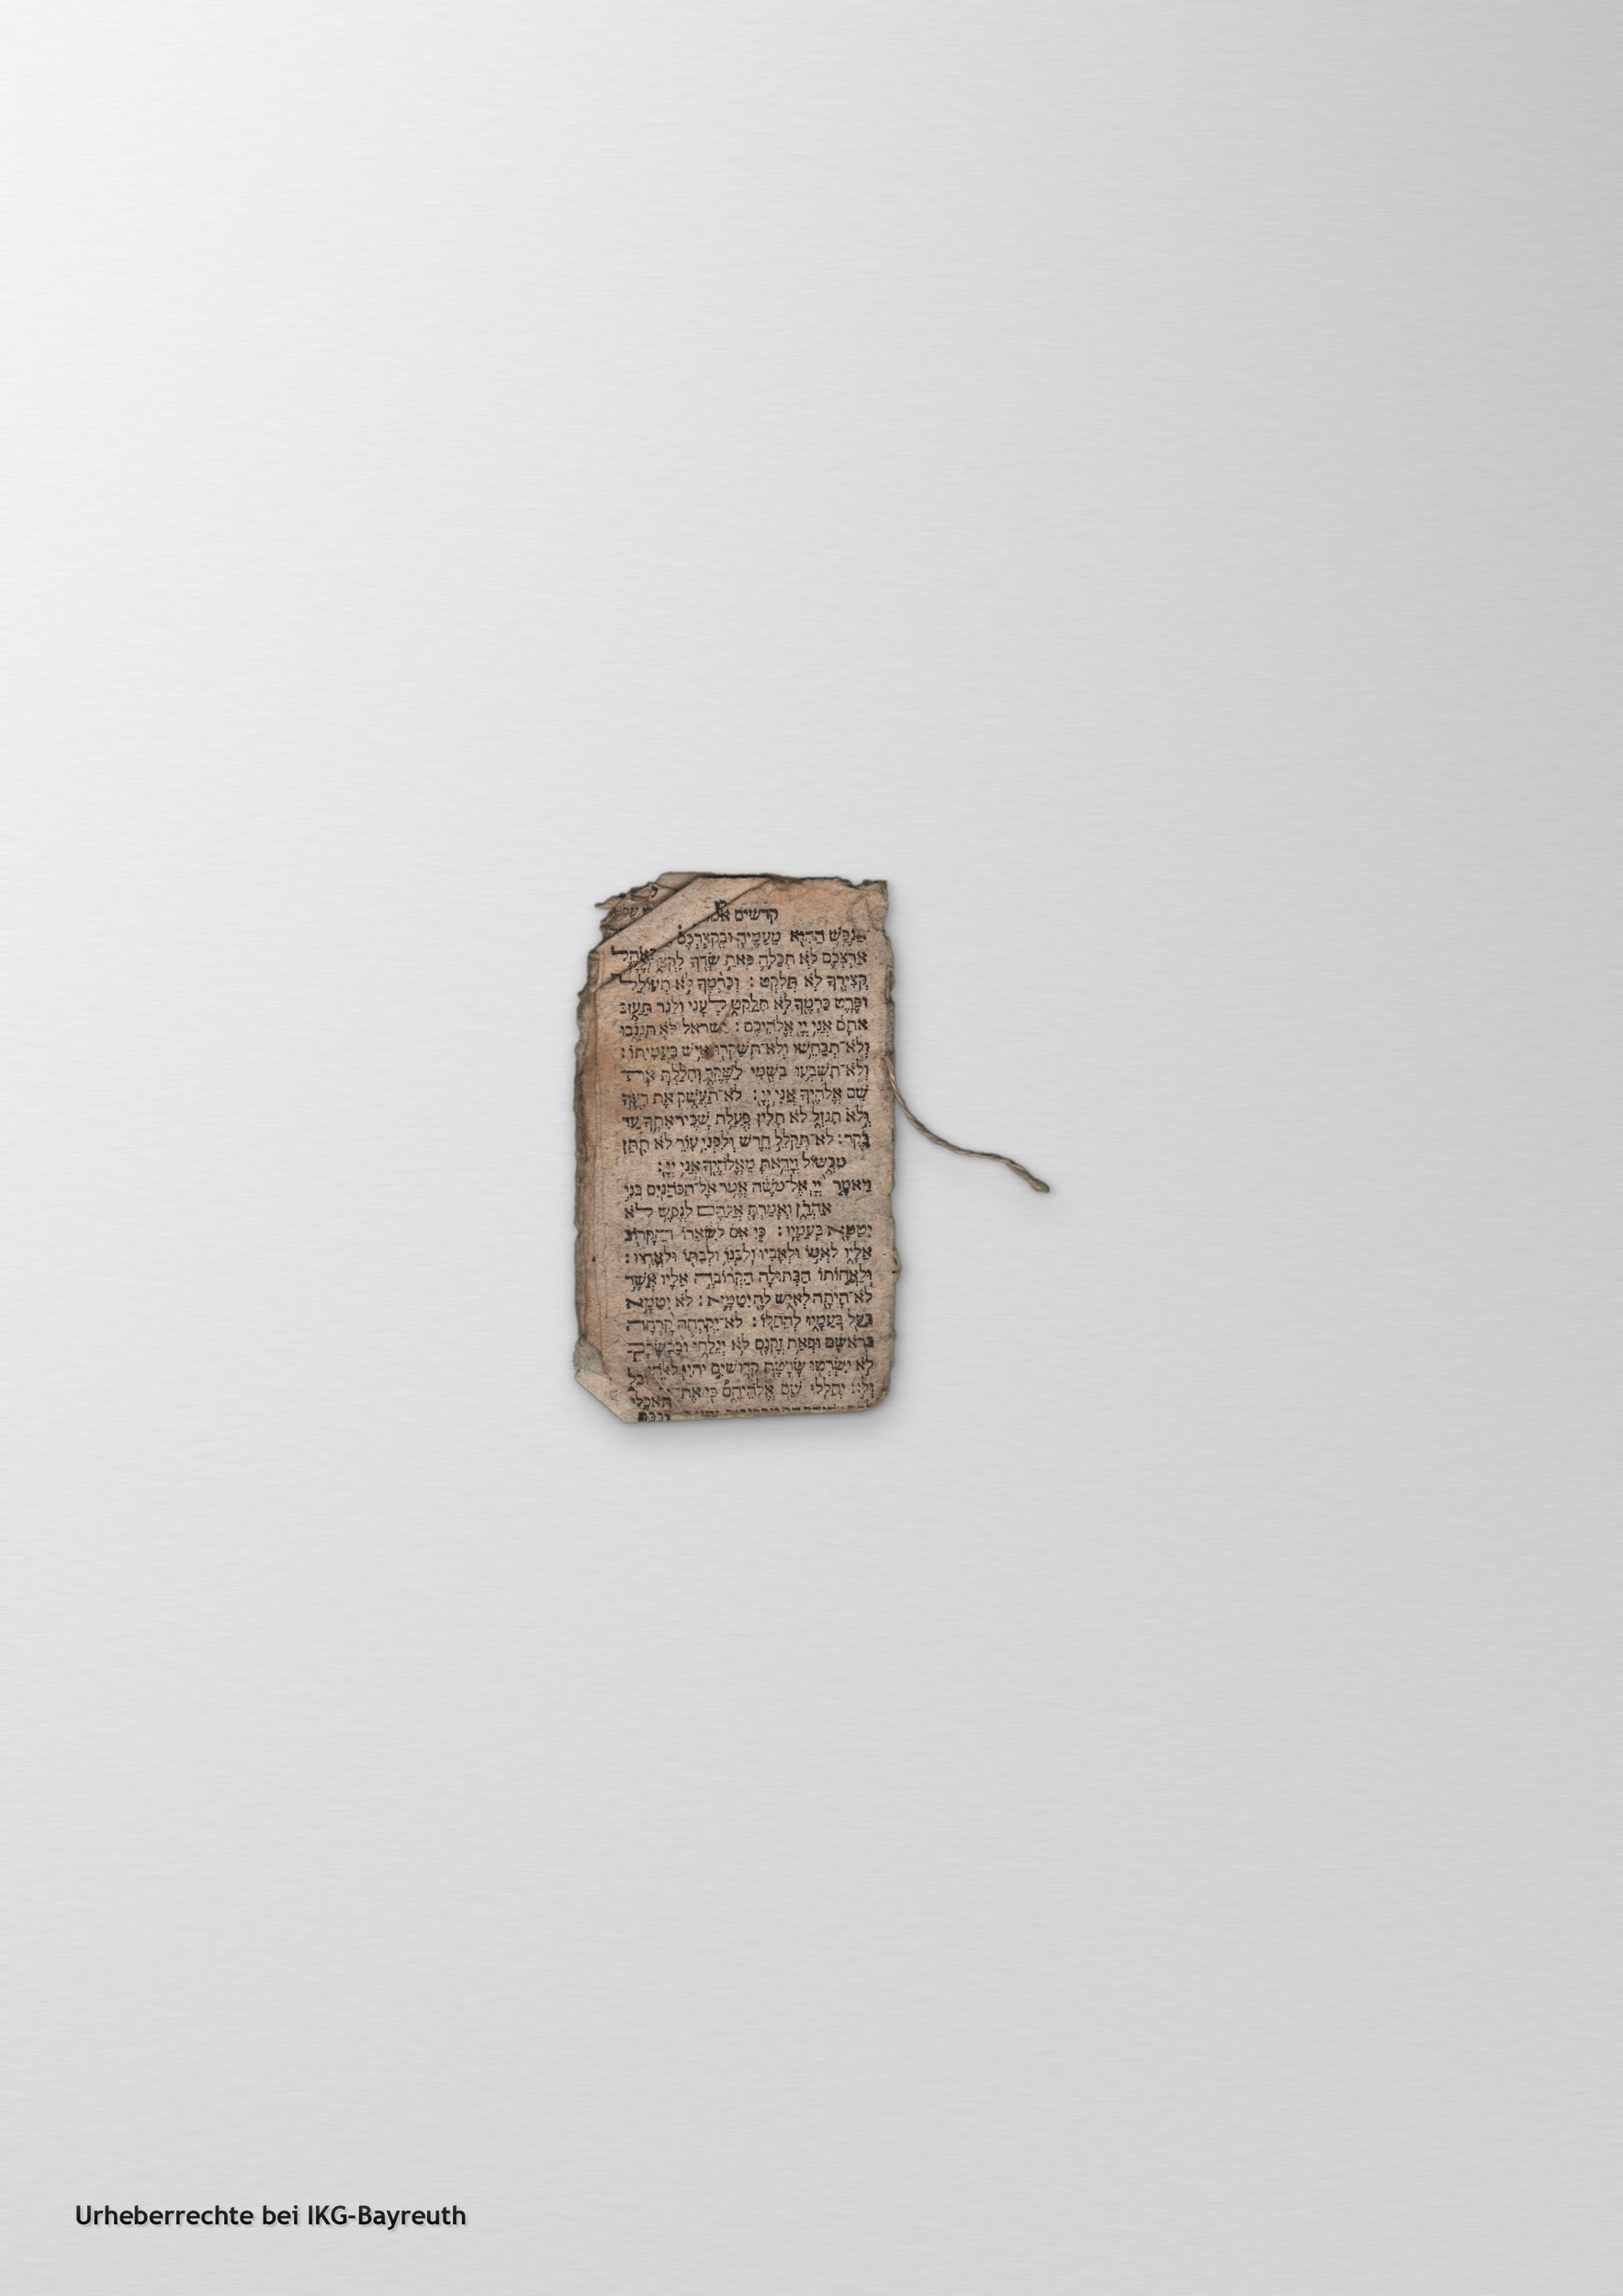 קדשים
הנפש ההיא מעמיה ובקצרכם
ארצכם לא תכלה פאת שדך לקצר
קצירך לא תלקט : וכרמך לא תעולל
ופרט כרמך לא תלקט לעני ולגר תעזב
אתם אני יי אלהיכם : לא תגנבו
ולא־תכחשו ולא־תשקרו איש בעמיתו :
ולא־תשבעו בשמי לשקר וחללת את
שם אלהיך אני יי : לא־תעשק את רעך
ולא תגזל לא תלין פעלת שכיר אתך עד
בקר : לא־תקלל חרש ולפני עור לא תתן
מכשול ויראת מאלהיך אני יי :
ויאמר יי אל־משה אמר אל־הכהנים בני
אהרן ואמרת אלהם לנפש לא
יטמא בעמיו : כי אם לשארו הקרוב
אליו לאמו ולאביו ולבנו ולבתו ולאחיו :
ולאחותו הבתולה הקרובה אליו אשר
לא־היתה לאיש לה יטמא : לא יטמא
בעל בעמיו להחלו : לא־יקרחה קרחה
בראשם ופאת זקנם לא יגלחו ובבשרם
לא ישרטו שרטת קדושים יהיו
ולא יחללו שם אלהיהם כי את
Urheberrechte bei IKG-Bayreuth